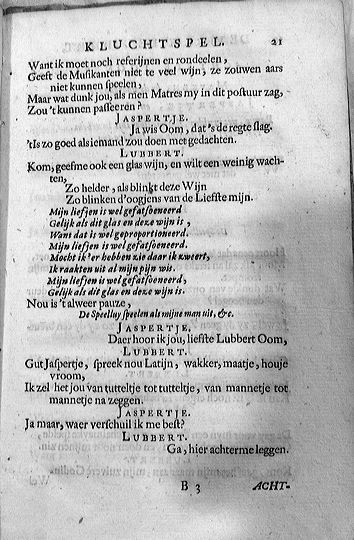 KLUCHTSPEL. 21
Want ik moet noch referijnen en rondeelen,
Geeft de Musikanten niet te veel wijn, ze zouwen aars
niet kunnen speelen,
Maar wat dunk jou, als men Matres my in dit postuur zag,
Zou 't kunnen passeeren?
JASPERTJE.
Ja wis Oom, dat's de regte slag.
't Is zo goed als iemand zou doen met gedachten.
LUBBERT.
Kom, geefme ook een glas wijn, en wilt een weinig wach-
ten,
Zo helder, als blinkt deze Wijn
Zo blinken d'oogjens van de Liefste mijn.
Mijn liefjen is wel gefatsoeneerd
Gelijk als dit glas en deze wijn is,
Want dat is wel geproportioneerd.
Mijn liefjen is wel gefatsoeneerd.
Mocht ik 'er hebben zie daar ik zweert,
Ik raakten uit al mijn pijn wis.
Mijn liefjen is wel gefatsoeneerd,
Gelijk als dit glas en deze wijn is.
Nou is 't alweer pauze,
De Speelluy speelen als mijne man uit, &c.
JASPERTJE.
Daer hoor ik jou, liefste Lubbert Oom,
LUBBERT.
Gut Jaspertje, spreek nou Latijn, wakker, maatje, houje
vroom,
Ik zel het jou van tutteltje tot tutteltje, van mannetje tot
mannetje na zeggen.
JASPERTJE.
Ja maar, waer verschuil ik me best?
LUBBERT.
Ga, hier achter me leggen.
B 3 ACHT-